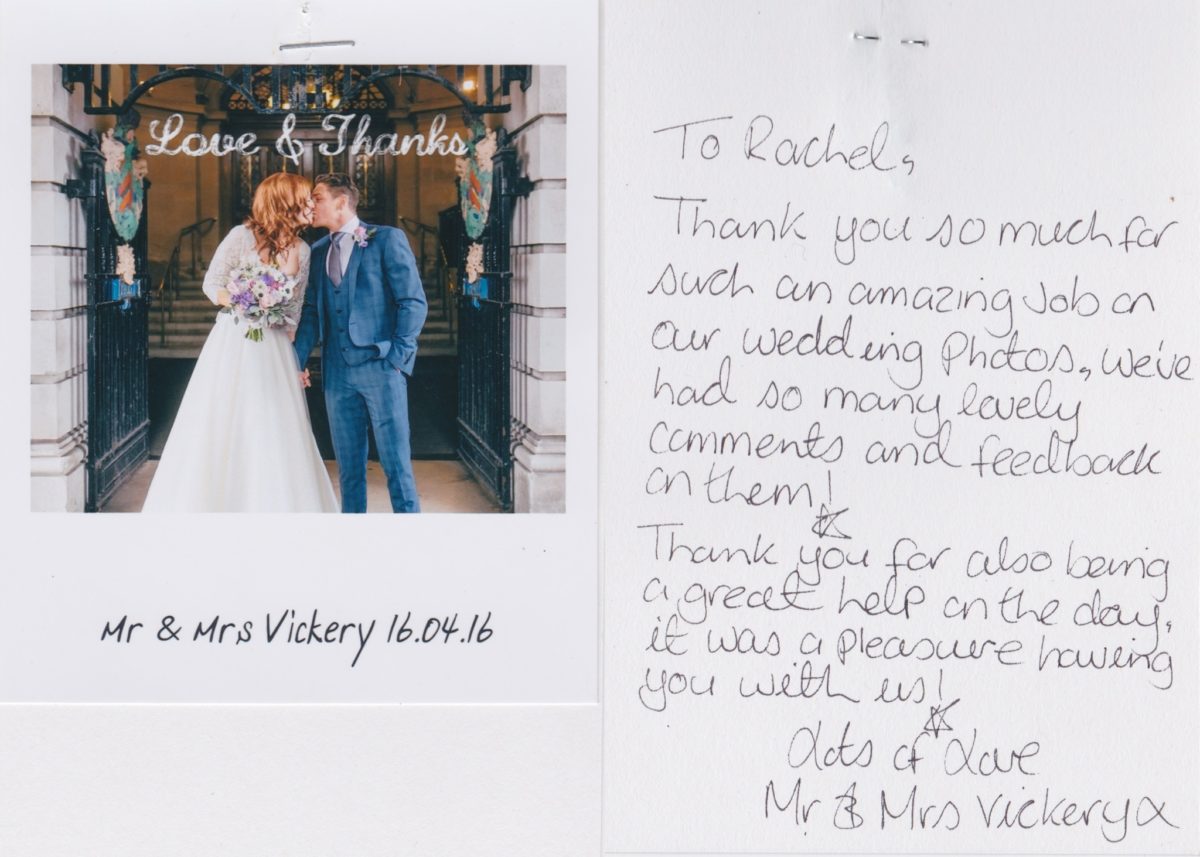 Love & Thanks
Mr & Mrs Vickery 16.04.16
To Rachel,
Thank you so much for
such an amazing Job on
our wedding Photos, we've
had so many lovely
comments and feedback
on them!
Thank you for also being
a great help on the day,
it was a pleasure having
you with us!
Lots of Love
Mr & Mrs Vickery x